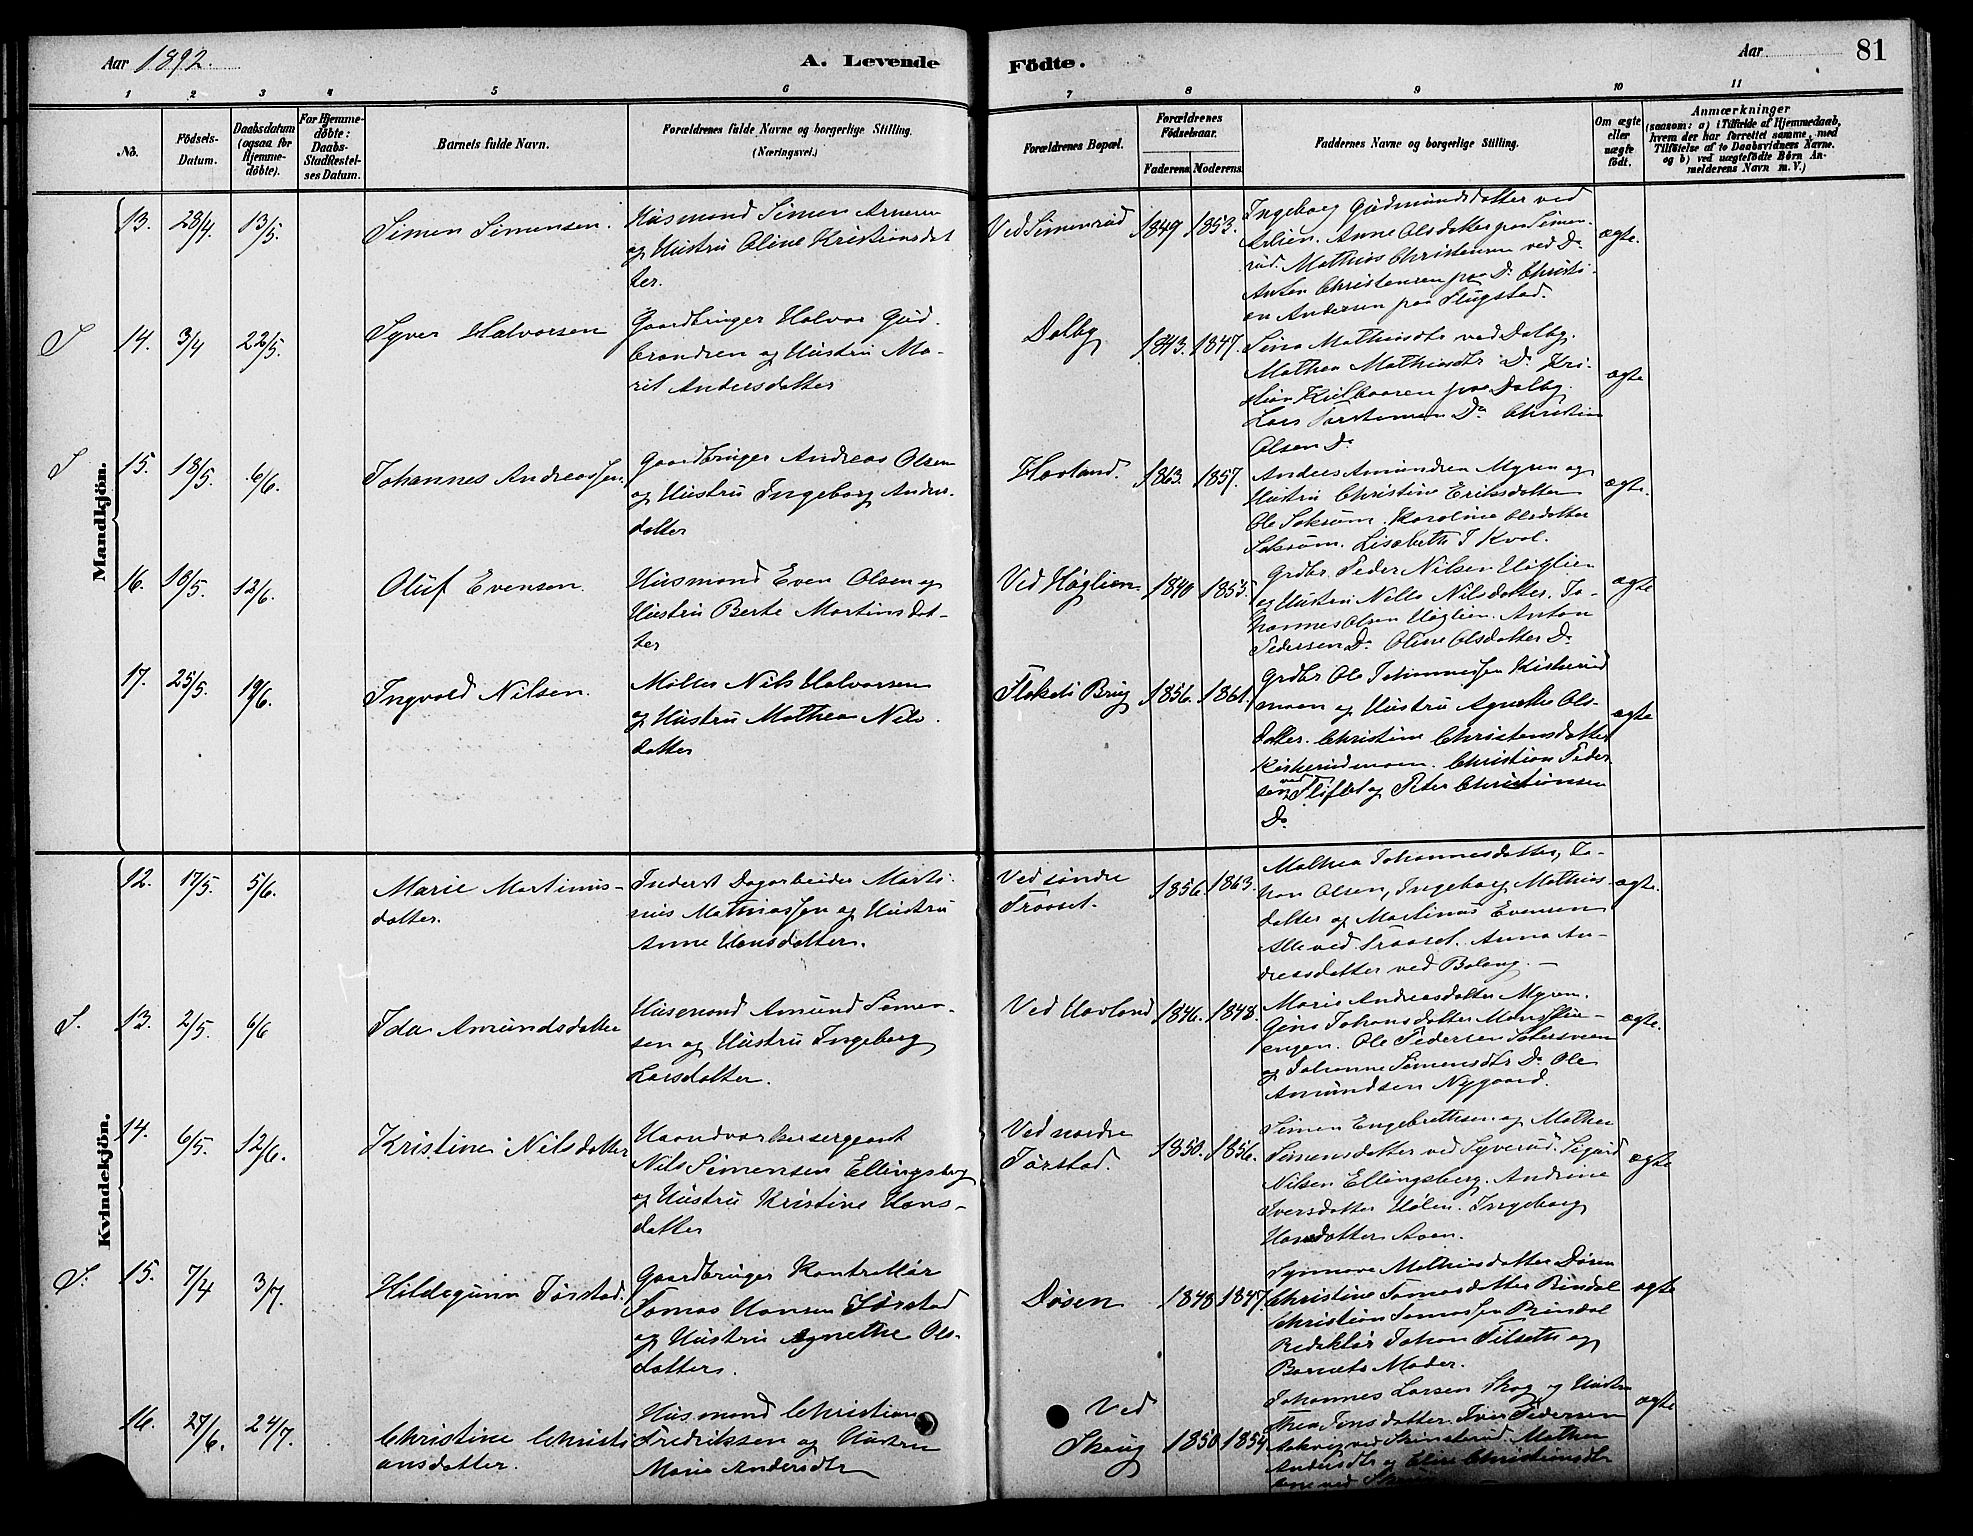 Aar 1892.
A. Levende
Födte.
Aar
81
1 2 3 4 5 6 7 8 9 10 11
No.
Födsels-Datum.
Daabsdatum (ogsaa for Hjemme-döbte).
For Hjemme-döbte: Daabs-Stadfæstelses Datum.
Barnets fulde Navn.
Forældrenes fulde Navne og borgerlige Stilling.
(Næringsvei.)
Forældrenes Bopæl.
Forældrenes Födselsaar.
Faderens. Moderens.
Faddernes Navne og borgerlige Stilling.
Om ægte eller uægte födt.
Anmærkninger
(saasom: a) i Tilfælde af Hjemmedaab,
hvem der har forrettet samme, med
Tilföielse af to Daabsvidners Navne.
og b) ved uægtefödte Börn An-
melderens Navn m. V.)
Mandkjön.
13. 28/4 13/5. Simen Simensen.
Husmand Simen Arnesen
og Hustru Oline Kristiansdat
ter.
Ved Simenrud 1849 1853.
Ingeborg Gudmundsdatter ved
Anne Olsdatter paa Simen-
rud. Mathias Christensen ved Do
Anton Christensen paa Do Christi-
an Andersen paa
ægte.
S 14. 3/4 22/5. Syver Halvorsen
Gaardbruger Halvor Gud-
brandsen og Hustru Ma-
rit Andersdatter
Dalby 1843. 1847.
Mathiasdtr ved Dalby.
Mathea Mathiasdtr Do Kri-
stian paa Dalby.
Lars Torstensen Do Christian
Olsen Do
ægte
S 15. 18/5. 6/6. Johannes Andreassen.
Gaardbruger Andreas Olsen
og Hustru Ingeborg Anders-
datter
Havland. 1863. 1857.
Anders Amundsen Myren og
Hustru Christine Eriksdatter
Ole Karoline Olsdatter
Lisabeth J Kval.
ægte.
16. 18/5. 12/6. Oluf Evensen.
Husmand Even Olsen og
Hustru Berte Martinsdat-
ter
Ved Høglien 1840 1853.
Grdbr. Peder Nilsen Høglien
og Hustru Nilsdatter. Jo-
hannes Olsen Høglien. Anton
Pedersen Do Oline Olsdatter Do
ægte
17. 25/5. 19/6. Ingvald Nilsen.
Møller Nils Halvorsen
og Hustru Mathea Nils-
datter
Brug 1856. 1861.
Grdbr Ole Johannessen Kiskerud
moen og Hustru Agnethe Ols-
datter. Christine Christensdatter
Kiskerudmoen. Christian Peder
sen ved og Peter Christiansen
Do
ægte
Kvindekjön.
12. 17/5. 5/6. Marie Martinus-
datter.
Inderst Dagarbeider Marti-
nus Mathiassen og Hustru
Anne Hansdatter.
Ved søndre
Traaset. 1856. 1863.
Mathea Johannesdatter, Jo-
han Olsen, Ingeborg Mathias-
datter og Martinus Evensen
Alle ved Traaset. Anna An-
dreasdatter ved
ægte.
S. 13. 2/5. 6/6 Ida Amundsdatter
Husmand Amund Simen-
sen og Hustru Ingeborg
Larsdatter.
Ved Havland 1846. 1848.
Marie Andreasdatter Myren.
Johansdatter
engen. Ole Pedersen
og Johanne Simensdtr Do Ole
Amundsen Nygaard.
ægte.
14. 6/5. 12/6. Kristine Nilsdatter
Haandværkersergeant
Nils Simensen Ellingsberg
og Hustru Kristine Hans-
datter
Ved nordre
Jørstad. 1850. 1856.
Simen Engebrethsen og Mathea
Simensdatter ved Syverud. Sigurd
Nilsen Ellingsberg. Andrine
Iversdatter Ingeborg
Hansdatter
ægte
S. 15. 7/4 3/7. Hildegunn Jørstad.
Gaardbruger Kontrollør
Tomas Hansen Jørstad
og Hustru Agnethe Ols-
datter.
Døsen 1848 1847.
Synnøve Mathiasdatter Døsen
Christine Tomasdatter Rindal
Christian Tomassen Rindal
Redaktør Johan Filseth og
Barnets Moder.
ægte
16. 27/6. 24/7. Christine Christi
ansdatter.
Husmand Christian
Fredriksen og Hustru
Marie Andersdtr
Ved
Skoug 1850 1854
Johannes Larsen Skog og Hustru
Thea Jensdatter. Iver Pedersen
ved Mathea
Andersdtr og Christiansdtr
ægte